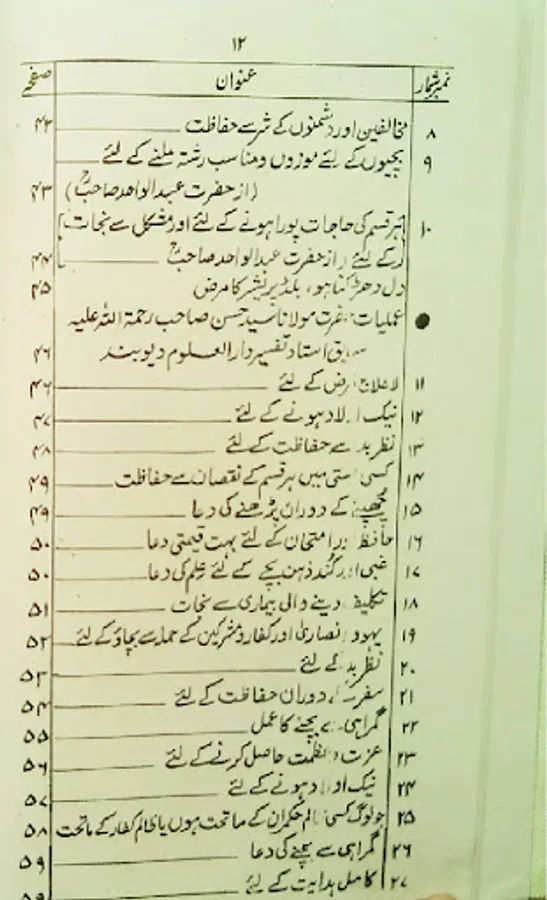 ۱۲
نمبر شمار عنوان صفحہ
۸ مخالفین اور دشمنوں کے شر سے حفاظت ۴۲
۹ بچیوں کے لئے موزوں و مناسب رشتہ ملنے کے لئے
(از حضرت عبدالواحد صاحبؒ) ۴۳
۱۰ ہر قسم کی حاجات پورا ہونے کے لئے اور مشکل سے نجات
کے لئے از حضرت عبدالواحد صاحبؒ ۴۴
دل دھڑکتا ہو، بلڈ پریشر کا مرض ۴۵
● عملیات حضرت مولانا سید حسن صاحب رحمۃ اللہ علیہ
سابق استاد تفسیر دارالعلوم دیوبند ۴۶
۱۱ لاعلاج مرض کے لئے ۴۶
۱۲ نیک اولاد ہونے کے لئے ۴۷
۱۳ نظر بد سے حفاظت کے لئے ۴۸
۱۴ کسی بستی میں ہر قسم کے نقصان سے حفاظت ۴۹
۱۵ کے دوران پڑھنے کی دعا ۴۹
۱۶ حافظہ اور امتحان کے لئے بہت قیمتی دعا ۵۰
۱۷ غبی اور کند ذہن بچے کے لئے علم کی دعا ۵۰
۱۸ تکلیف دینے والی بیماری سے نجات ۵۱
۱۹ یہود و نصاریٰ اور کفار و مشرکین کے حملہ سے بچاؤ کے لئے ۵۲
۲۰ نظر بد کے لئے ۵۳
۲۱ سفر دوران حفاظت کے لئے ۵۴
۲۲ گمراہی سے بچنے کا عمل ۵۵
۲۳ عزت و عظمت حاصل کرنے کے لئے ۵۶
۲۴ نیک اولاد ہونے کے لئے ۵۷
۲۵ جو لوگ کسی ظالم حکمران کے ماتحت ہوں یا ظالم کفار کے ماتحت ۵۸
۲۶ گمراہی سے بچنے کی دعا ۵۹
۲۷ کامل ہدایت کے لئے ۵۹